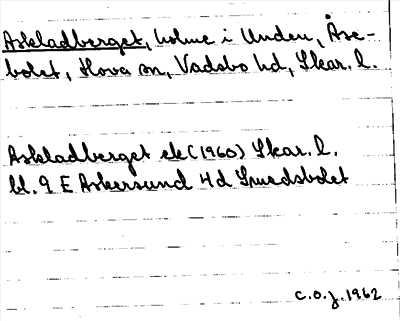 Askladberget, holme i Unden, Åse-
bolet, Hova sn, Vadsbo hd, Skar. l.
Askladberget ek (1960) Skar. l.
bl. 9 E Askersund 4d Smedsbolet
C.O.J. 1962